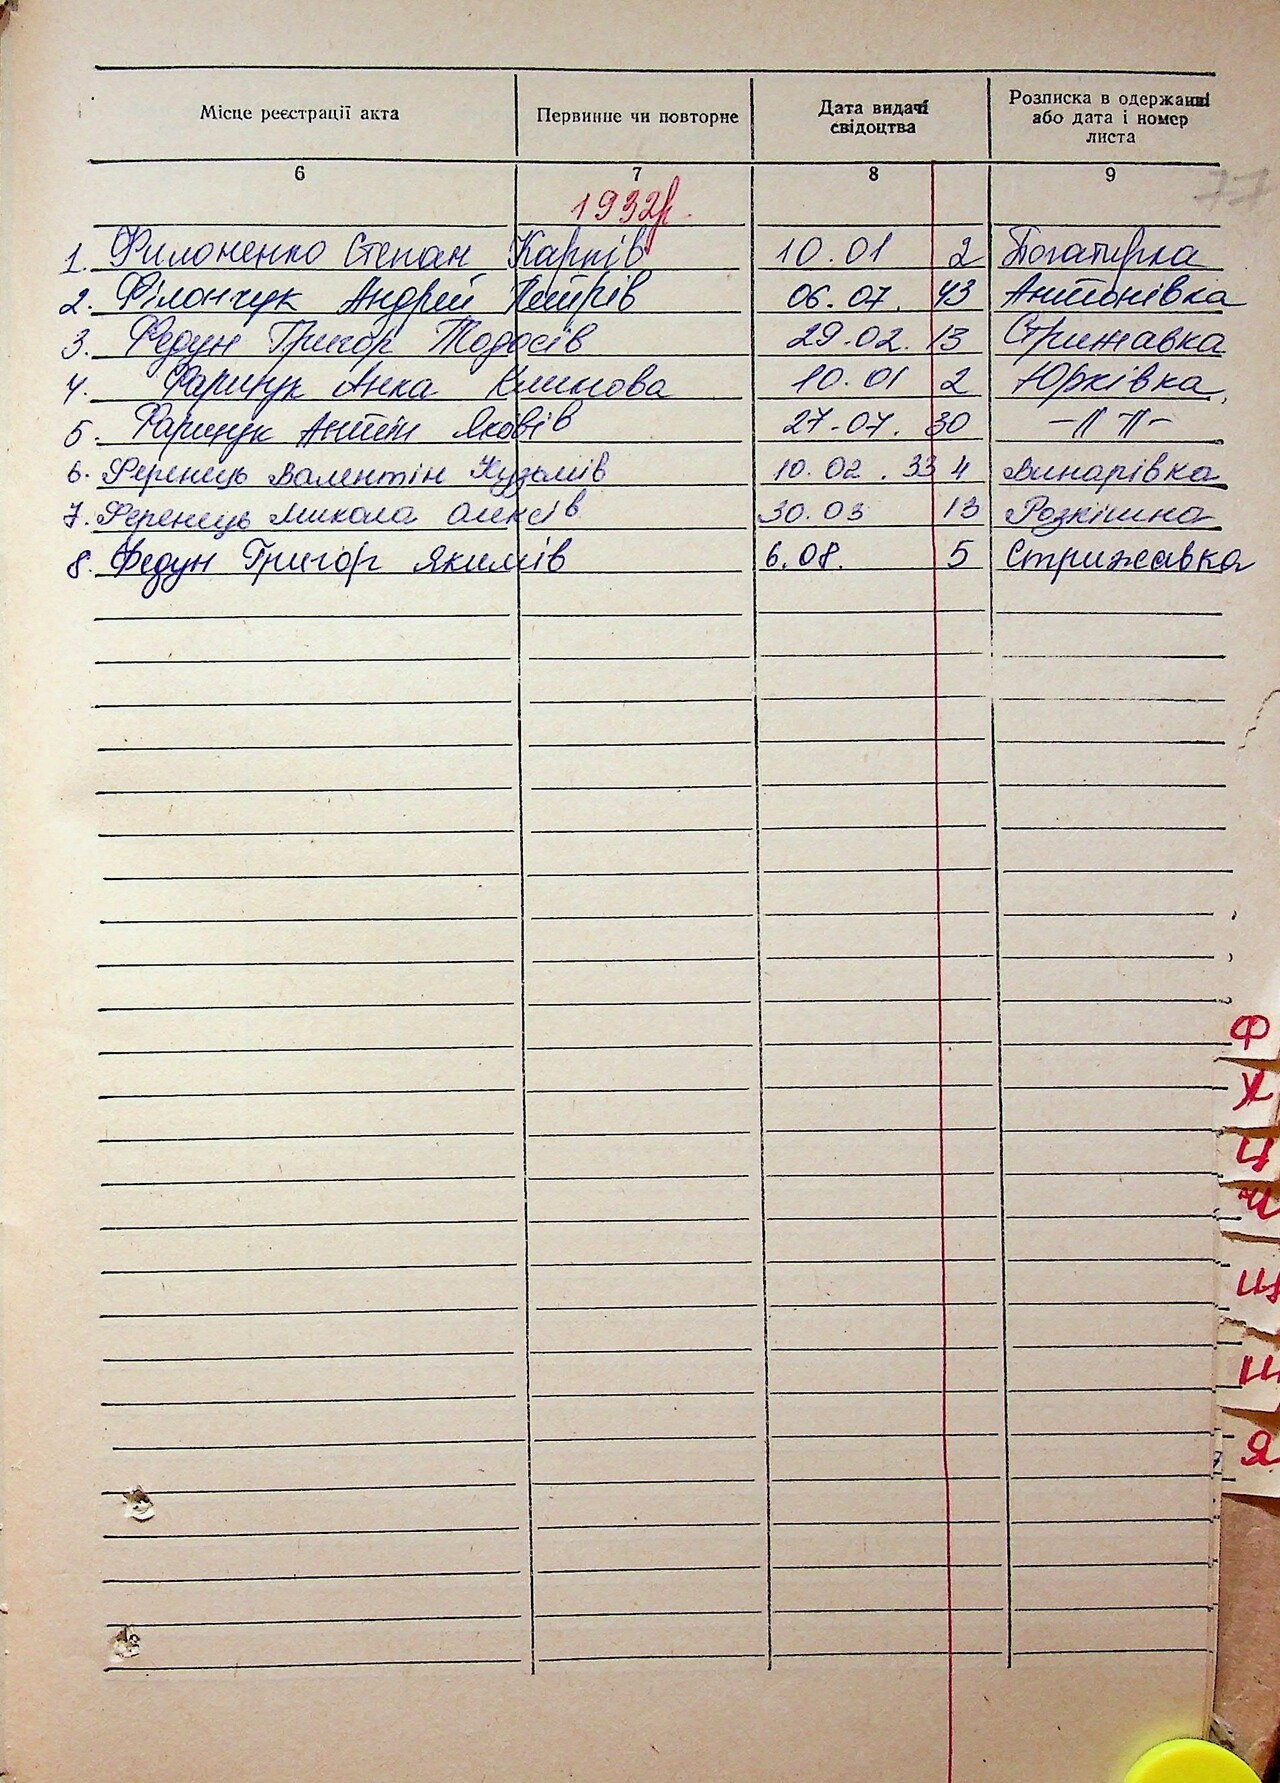 Місце реєстрації акта Первинне чи повторне Дата видачі свідоцтва Розписка в одержанні або дата і номер листа
6 7 8 9
77
1932р.
1. Филоненко Степан Карпів 10.01 2 Погатирка
2. Філончук Андрей Петрів 06.07. 43 Антонівка
3. Федун Григор Тодосів 29.02. 13 Стрижавка
4. Фаринук Анна Климова 10.01 2 Юрківка
5. Фаринук Антін Яковів 27.07. 30 -〃-
6. Ференець Валентін Кузьмів 10.02.33 4 Винарівка
7. Ференець Микола Олексів 30.03 13 Розкішна
8. Федун Григор Якимів 6.08. 5 Стрижавка
Ф
Х
Ц
Ч
Щ
Ш
Я